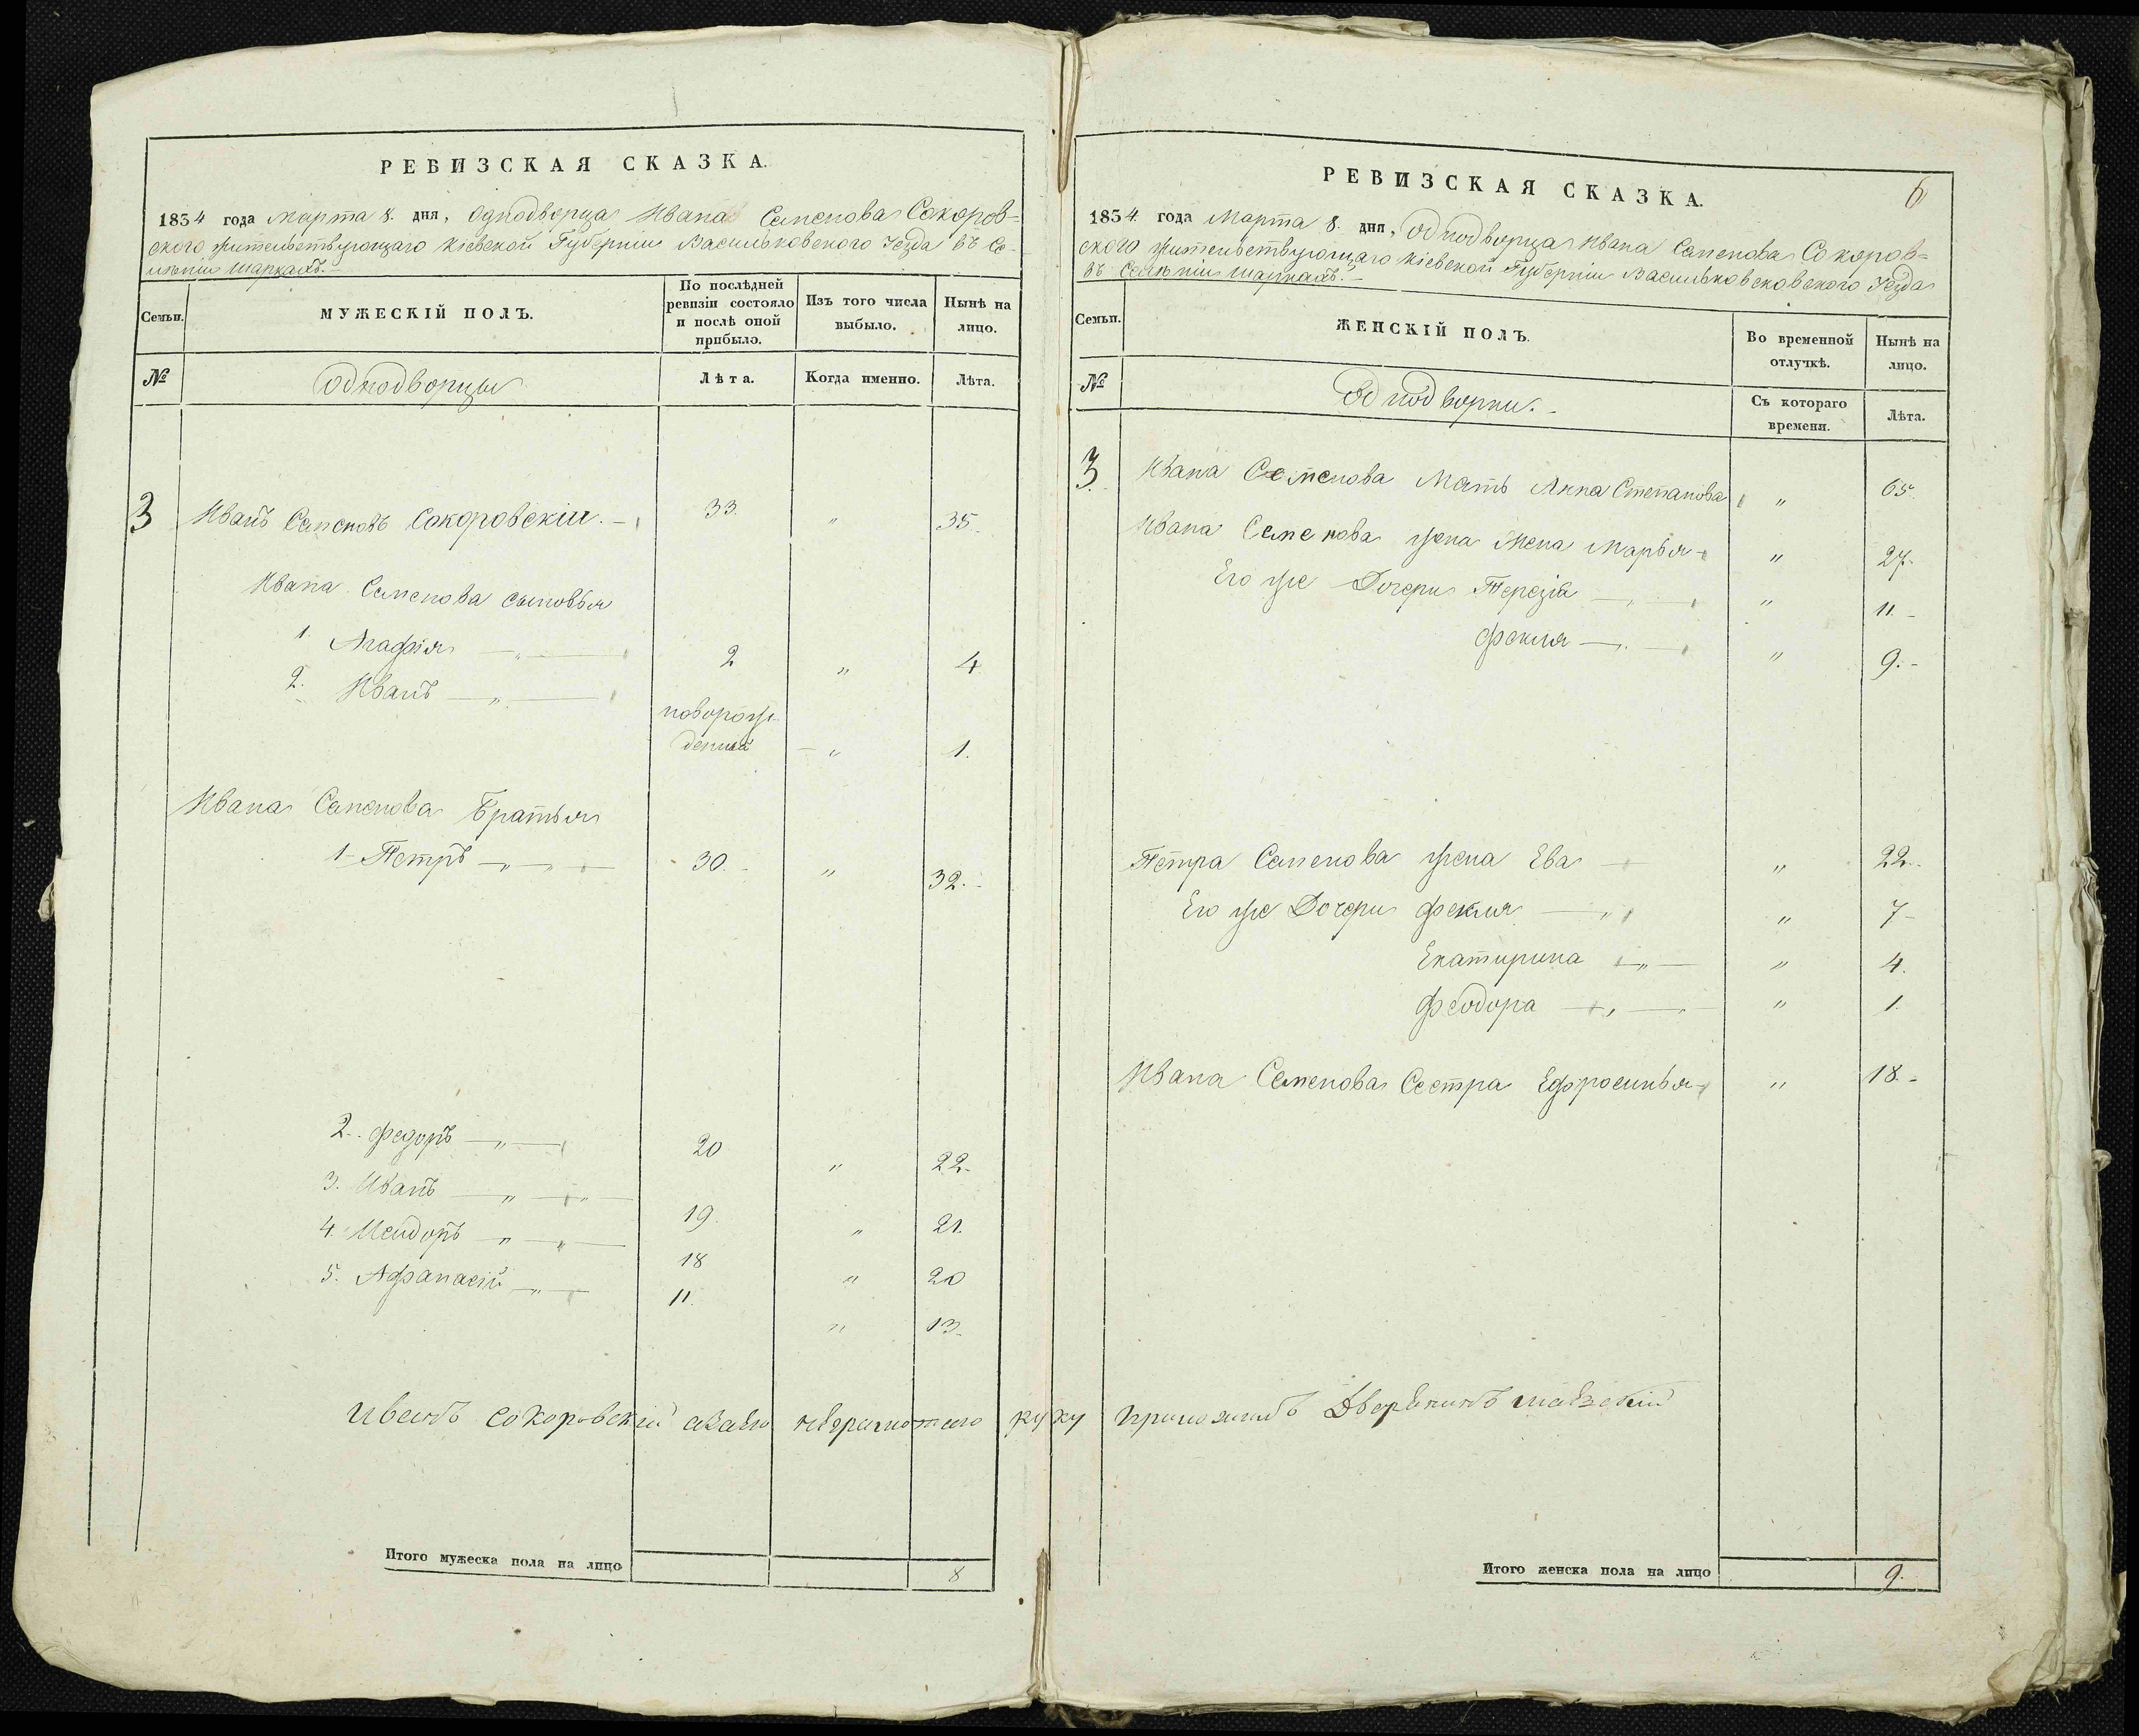 РЕВИЗСКАЯ СКАЗКА.
1834 года Марта 8. дня, Однодворца Ивана Семенова Сокоров-
ского жительствующаго Кіевской Губерніи Васильковского Уезда въ Се-
леніи Шаркахъ.
Семьи.
МУЖЕСКІЙ ПОЛЪ.
По послѣдней
ревизіи состояло
и послѣ оной
прибыло.
Изъ того числа
выбыло.
Нынѣ на
лицо.
№
Однодворцы
Лѣта.
Когда именно.
Лѣта.
3 Иванъ Семеновъ Сокоровскій. 33. " 35.
Ивана Семенова сыновья
1. " 2 " 4
2. Иванъ " новорож-
денный " 1.
Ивана Семенова Братья
1 Петръ " " 30. " 32.
2. Федоръ " 20 " 22.
3. Иванъ " " 19. " 21.
4. Исидоръ " " 18 " 20
5. Афанасій " 11. " 13.
Сокоровскій неграмотного руку приложилъ
Итого мужеска пола на лицо 8
РЕВИЗСКАЯ СКАЗКА.
6
1834. года Марта 8. дня, Однодворца Ивана Семенова Сокоров-
ского жительствующаго Кіевской Губерніи Васильковсковского Уезда
въ Селеніи Шаркахъ.
Семьи.
ЖЕНСКІЙ ПОЛЪ.
Во временной
отлучкѣ.
Нынѣ на
лицо.
№
Однодворки.
Съ котораго
времени.
Лѣта.
3. Ивана Семенова Мать Анна Степанова " 65.
Ивана Семенова жена Марья " 27.
Его же Дочери Терезія " 11.
Фекля " 9.
Петра Семенова жена Ева " 22.
Его же Дочери Фекля " " 7
Екатирина " " 4.
Феодора " " 1.
Ивана Семенова Сестра Ефросинья " 18.
Итого женска пола на лицо 9.